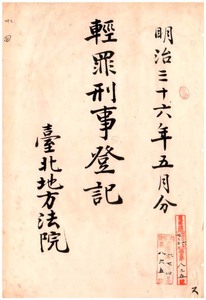 明治三十六年五月分
輕罪刑事登記
臺北地方法院